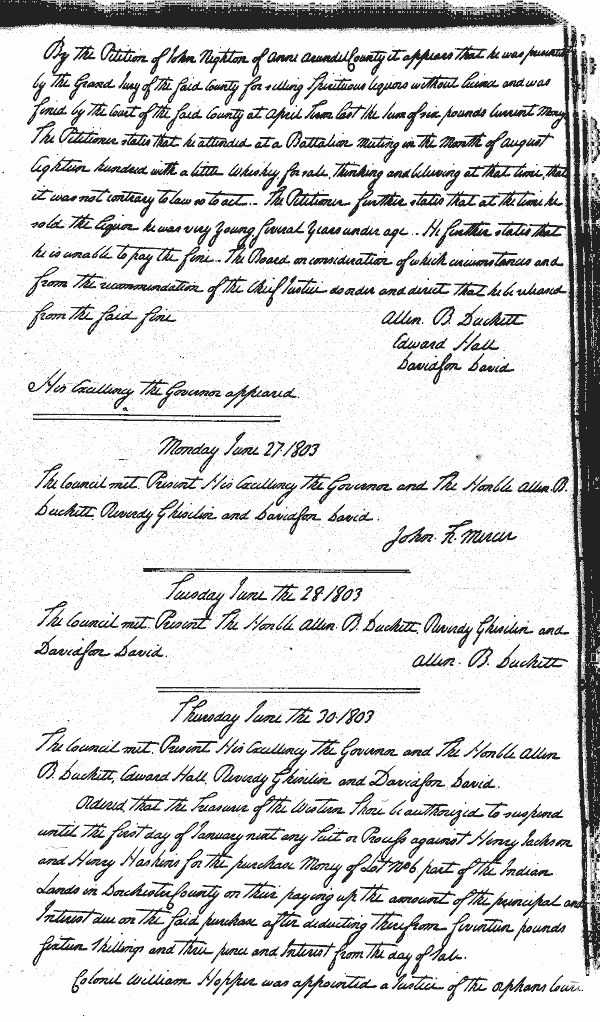 By the Petition of John Nighton of Anne Arundel County it appears that he was presented
by the Grand Jury of the said County for selling Spirituous liquors without licence and was
fined by the Court of the said County at April Term last the sum of six pounds current Money
The Petitioner states that he attended at a Battalion meeting in the Month of August
Eighteen hundred with a little Whiskey for sale, thinking and believing at that time, that
it was not contrary to law so to act .. The Petitioner further states that at the time he
sold the liquor he was very young several Years under age .. He further states that
he is unable to pay the fine .. The Board on consideration of which circumstances and
from the recommendation of the Chief Justice do order and direct that he be released
from the said fine
Allen B. Duckett
Edward Hall
Davidson David
His Excellency the Governor appeared.
Monday June 27. 1803
The Council met. Present His Excellency the Governor and The Honble Allen B.
Duckett, Reverdy Ghiselin and Davidson David.
John F. Mercer
Tuesday June the 28. 1803
The Council met. Present The Honble Allen B. Duckett, Reverdy Ghiselin and
Davidson David.
Allen. B. Duckett
Thursday June the 30. 1803
The Council met. Present His Excellency the Governor and The Honble Allen
B. Duckett, Edward Hall, Reverdy Ghiselin and Davidson David.
Ordered, that the Treasurer of the Western Shore be authorized to suspend
until the first day of January next any Suit or Process against Henry Jackson
and Henry Haskins for the purchase Money of Lot No 6 part of the Indian
Lands in Dorchester County on their paying up the amount of the principal and
Interest due on the said purchase after deducting therefrom seventeen pounds
sixteen shillings and three pence and Interest from the day of Sale.
Colonel William Hopper was appointed a Justice of the Orphans Court